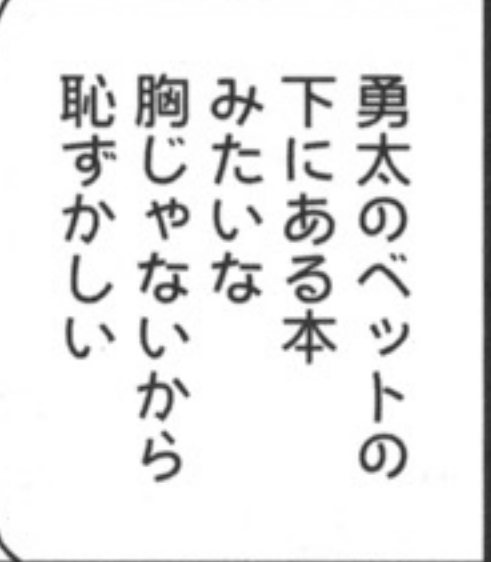 勇太のベットの
下にある本
みたいな
胸じゃないから
恥ずかしい